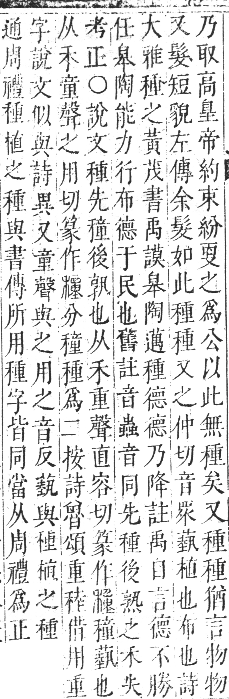 乃取高皇帝約束紛更之爲公以此無種矣又種種猶言物物
又髮短貌左傳余髮如此種種又之仲切音衆蓺植也布也詩
大雅種之黃茂書禹謨皋陶邁種德德乃降註禹曰言德不勝
任皋陶能力行布德于民也舊註音蟲音同先種後熟之禾失
考正〇說文種先穜後孰也从禾重聲直容切篆作穜穜蓺也
从禾童聲之用切篆作穜分穜種爲二按詩魯頌重穋借用重
字說文似與詩異又童聲與之用之音反蓺與種植之種
通周禮種植之種與書傳所用種字皆同當从周禮爲正